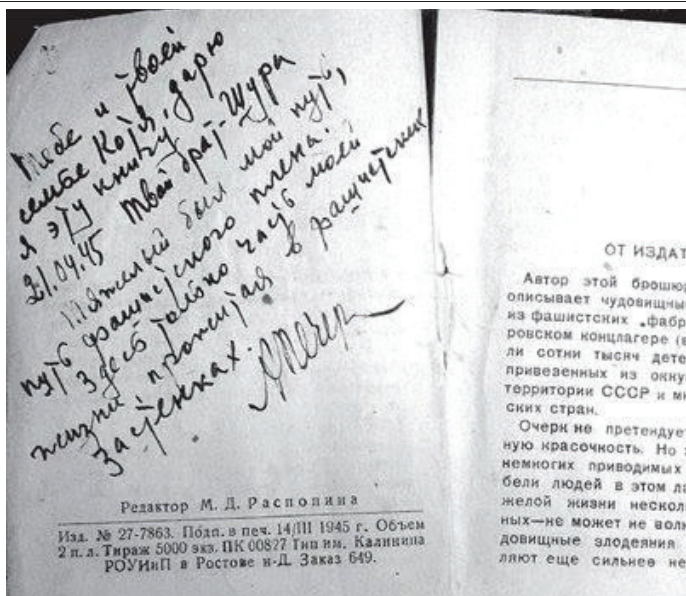 Тебе и твоей
семье Котя, дарю
я эту книгу
21.04.45 Твой брат-Шура
Тяжелый был мой путь,
путь фашистского плена.
Здесь только часть моей
жизни прожитая в фашистских
застенках.
АПечер
Редактор М. Д. Распопина
Изд. № 27-7863. Подп. в печ. 14/III 1945 г. Объем
2 п. л. Тираж 5000 экз. ПК 00827 Тип им. Калинина
РОУИиП в Ростове н-Д. Заказ 649.
ОТ ИЗДАТ
Автор этой брошюр
описывает чудовищны
из фашистских „фабр
ровском концлагере (в
ли сотни тысяч дете
привезенных из окку
территории СССР и мн
ских стран.
Очерк не претендуе
ную красочность. Но
немногих приводимых
бели людей в этом ла
желой жизни несколь
ных—не может не вол
довищные злодеяния
ляют еще сильнее не